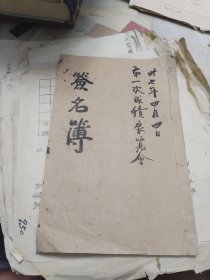 廿七年四月四日
第一次成績展覽會
簽名簿
250